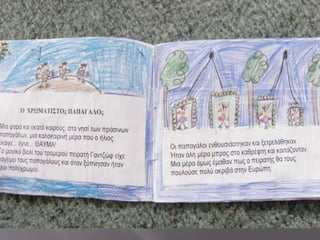 Ο ΧΡΩΜΑΤΙΣΤΟΣ ΠΑΠΑΓΑΛΟΣ
Μια φορά και εκατό καιρούς, στο νησί των πράσινων
παπαγάλων, μια καλοκαιρινή μέρα που ο ήλιος
έκαιγε... έγινε... ΘΑΥΜΑ!
Το μαγικό βιολί του τρομερού πειρατή Γαντζώφ είχε
μαγέψει τους παπαγάλους και όταν ξύπνησαν ήταν
όλοι πολύχρωμοι.
Οι παπαγάλοι ενθουσιάστηκαν και ξετρελάθηκαν.
Ήταν όλη μέρα μπρος στο καθρέφτη και κοιτάζονταν.
Μια μέρα όμως έμαθαν πως ο πειρατής θα τους
πουλούσε πολύ ακριβά στην Ευρώπη.